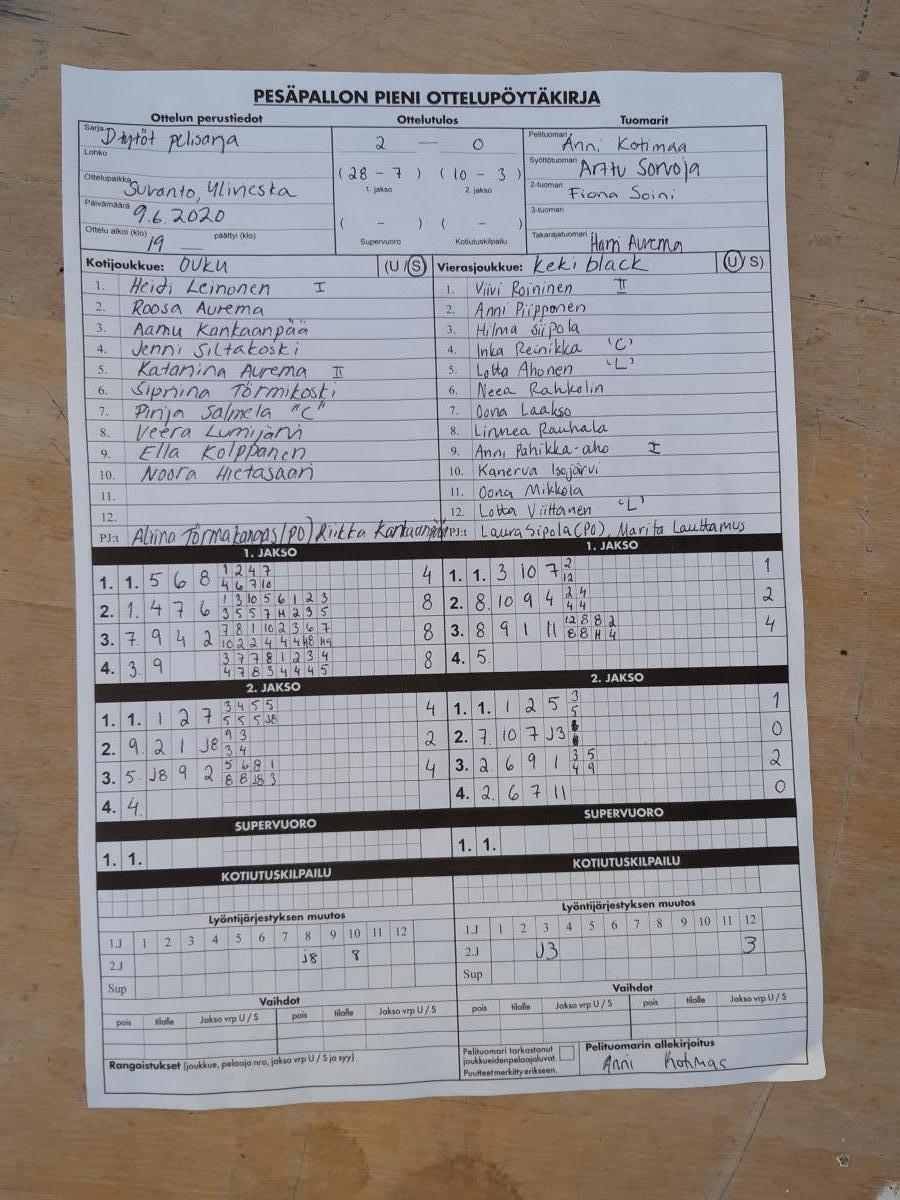 PESÄPALLON PIENI OTTELUPÖYTÄKIRJA
Ottelun perustiedot Ottelutulos Tuomarit
Sarja D-tytöt pelisarja
Lohko
Ottelupaikka Suvanto, Ylivieska
Päivämäärä 9.6.2020
Ottelu alkoi (klo) 19 päättyi (klo)
2 — 0
( 28 - 7 ) ( 10 - 3 )
1. jakso 2. jakso
( - ) ( - )
Supervuoro Kotiutuskilpailu
Pelituomari Anni Kotimaa
Syöttötuomari Arttu Sorvoja
2-tuomari Fiona Soini
3-tuomari
Takarajatuomari Harri Aurema
Kotijoukkue: OUKU (U/S)
1. Heidi Leinonen I
2. Roosa Aurema
3. Aamu Kankaanpää
4. Jenni Siltakoski
5. Katariina Aurema II
6. Sipriina Törmikoski
7. Pinja Salmela "C"
8. Veera Lumijärvi
9. Ella Kolppanen
10. Noora Hietasaari
11.
12.
PJ:t Aliina Törmäkangas (PO) Riikka Kankaanpää
Vierasjoukkue: Keki black (U/S)
1. Viivi Roininen II
2. Anni Piipponen
3. Hilma Siipola
4. Inka Reinikka 'C'
5. Lotta Ahonen 'L'
6. Neea Rahkolin
7. Oona Laakso
8. Linnea Rauhala
9. Anni Pahikka-aho I
10. Kanerva Isojärvi
11. Oona Mikkola
12. Lotta Viittanen 'L'
PJ:t Laura Sipola (PO), Marita Lauttamus
1. JAKSO
1. 1. 5 6 8 1 2 4 7 4
4 6 7 10
2. 1. 4 7 6 1 3 10 5 6 1 2 3 8
3 5 5 7 H 2 3 5
3. 7. 9 4 2 7 8 1 10 2 3 6 7 8
10 2 2 4 4 4
4. 3. 9 3 7 7 8 1 2 3 4 8
4 7 8 3 4 4 4 5
1. JAKSO
1. 1. 3 10 7 2 1
12
2. 8. 10 9 4 2 4 2
4 4
3. 8 9 1 11 12 8 8 2 4
8 8 H 4
4. 5.
2. JAKSO
1. 1. 1 2 7 3 4 5 5 4
5 5 5 J8
2. 9. 2 1 J8 9 3 2
3 4
3. 5. J8 9 2 5 6 8 1 4
8 8 J8 3
4. 4.
2. JAKSO
1. 1. 1 2 5 3 1
5
2. 7. 10 7 J3 0
3. 2. 6 9 1 3 5 2
4 9
4. 2. 6 7 11 0
SUPERVUORO
1. 1.
SUPERVUORO
1. 1.
KOTIUTUSKILPAILU
KOTIUTUSKILPAILU
Lyöntijärjestyksen muutos
1.J 1 2 3 4 5 6 7 8 9 10 11 12
2.J J8 8
Sup
Lyöntijärjestyksen muutos
1.J 1 2 3 4 5 6 7 8 9 10 11 12
2.J J3 3
Sup
Vaihdot
pois tilalle Jakso vrp U / S pois tilalle Jakso vrp U / S
Vaihdot
pois tilalle Jakso vrp U / S pois tilalle Jakso vrp U / S
Rangaistukset (joukkue, pelaaja nro, jakso vrp U / S ja syy)
Pelituomari tarkastanut
joukkueiden pelaajaluvat.
Puutteet merkitty erikseen.
Pelituomarin allekirjoitus
Anni Kotimaa